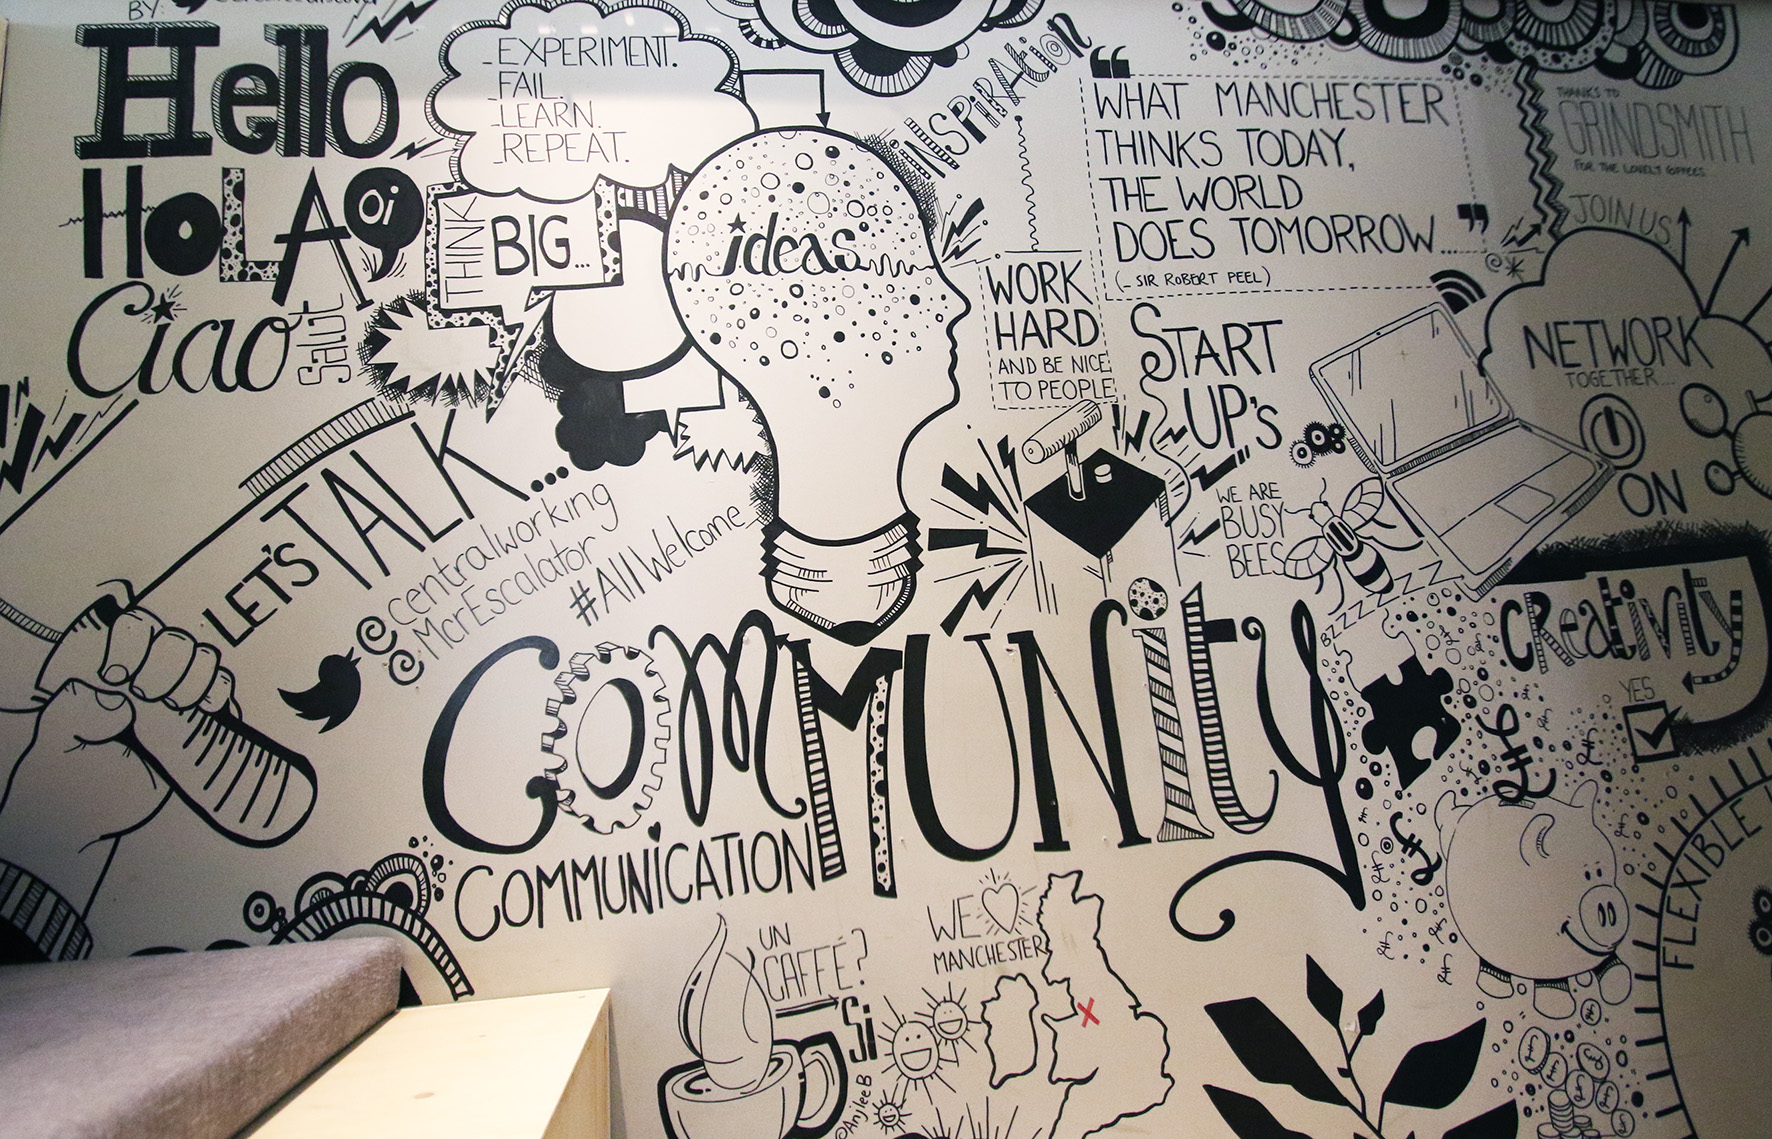 BY:
Hello
HOLA
Oi
Ciao
Salut
EXPERIMENT.
FAIL.
LEARN.
REPEAT.
THINK
BIG...
ideas
INSPIRATION
WHAT MANCHESTER
THINKS TODAY,
THE WORLD
DOES TOMORROW...
(- SIR ROBERT PEEL)
THANKS TO
GRINDSMITH
FOR THE LOVELY COFFEES
JOIN US
WORK
HARD
AND BE NICE
TO PEOPLE
START
UP's
NETWORK
TOGETHER...
ON
WE ARE
BUSY
BEES
BZZZZZZZZZ
LET'S TALK...
@centralworking
@McrEscalator
#AllWelcome
COMMUNITY
COMMUNICATION
CREATIVITY
YES
FLEXIBLE
UN
CAFFÉ?
Si
@AnjleeB
WE
MANCHESTER
X